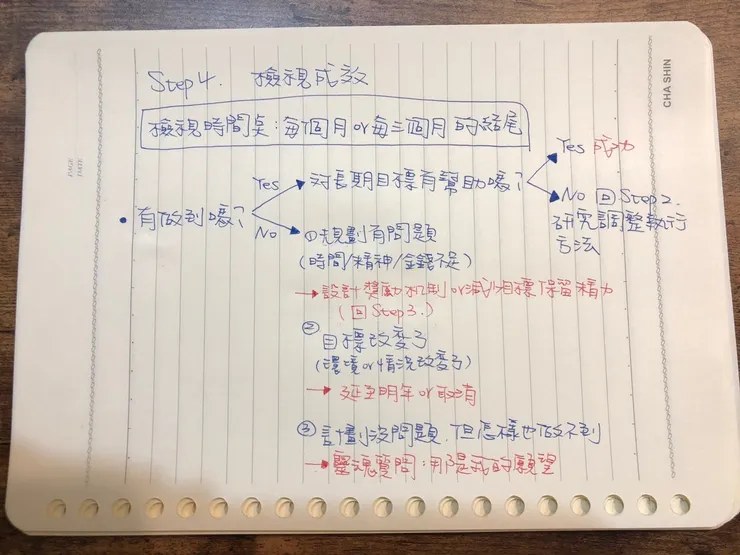 Step 4. 檢視成效
檢視時間点:每1個月 or 每三個月 的結尾
• 有做到嗎?
Yes
對長期目標有幫助嗎?
Yes 成功
No 回 Step 2.
研究調整執行
方法
No
①規劃有問題
(時間/精神/金錢不足)
→設計獎勵机制 or 減少目標保留精力
(回 Step 3.)
②
目標改變了
(環境 or 情況改變了)
→ 延至明年 or 取消
③ 計劃沒問題,但怎樣也做不到
→靈魂質問:那是我的願望
CHA SHIN
PAGE
DATE